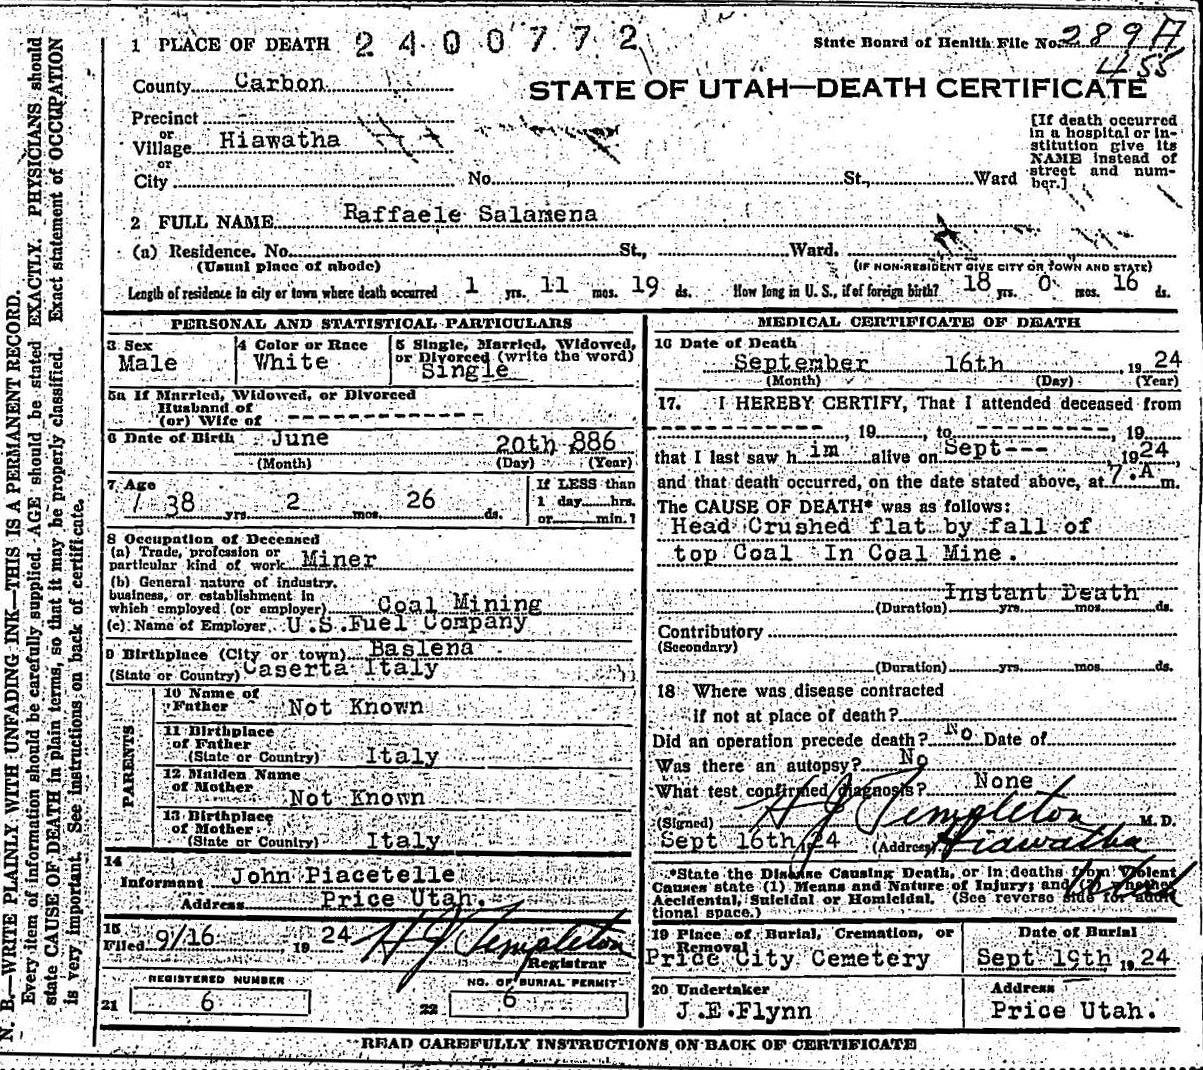 1 PLACE OF DEATH 2400772
State Board of Health File No. 289 A
455
County Carbon
STATE OF UTAH—DEATH CERTIFICATE
Precinct
or
Village Hiawatha
or
City No. St., Ward
[If death occurred
in a hospital or in-
stitution give its
NAME instead of
street and num-
ber.]
2 FULL NAME Raffaele Salamena
(a) Residence. No. St., Ward.
(Usual place of abode)
(IF NON-RESIDENT GIVE CITY OR TOWN AND STATE)
Length of residence in city or town where death occurred 1 yrs. 11 mos. 19 ds. How long in U. S., if of foreign birth? 18 yrs. 0 mos. 16 ds.
PERSONAL AND STATISTICAL PARTICULARS
3 Sex
Male
4 Color or Race
White
5 Single, Married, Widowed,
or Divorced (write the word)
Single
5a If Married, Widowed, or Divorced
Husband of
(or) Wife of
6 Date of Birth June 20th 886
(Month) (Day) (Year)
7 Age
38 yrs. 2 mos. 26 ds.
If LESS than
1 day hrs.
or min.?
8 Occupation of Deceased
(a) Trade, profession or
particular kind of work Miner
(b) General nature of industry,
business, or establishment in
which employed (or employer) Coal Mining
(c) Name of Employer U.S.Fuel Company
9 Birthplace (City or town) Baslena
(State or Country) Caserta Italy
PARENTS
10 Name of
Father Not Known
11 Birthplace
of Father
(State or Country) Italy
12 Maiden Name
of Mother Not Known
13 Birthplace
of Mother
(State or Country) Italy
14
Informant John Piacetelle
Address Price Utah.
15
Filed 9/16 19 24 H J Templeton
Registrar
REGISTERED NUMBER
21 6
NO. OF BURIAL PERMIT
22 6
MEDICAL CERTIFICATE OF DEATH
16 Date of Death
September 16th , 19 24
(Month) (Day) (Year)
17. I HEREBY CERTIFY, That I attended deceased from
, 19 , to , 19
that I last saw h im alive on Sept--- 1924,
and that death occurred, on the date stated above, at 7.A m.
The CAUSE OF DEATH* was as follows:
Head Crushed flat by fall of
top Coal In Coal Mine.
Instant Death
(Duration) yrs. mos. ds.
Contributory
(Secondary)
(Duration) yrs. mos. ds.
18 Where was disease contracted
if not at place of death?
Did an operation precede death? No Date of
Was there an autopsy? No
What test confirmed diagnosis? None
(Signed) H J Templeton M. D.
Sept 16th, 24 (Address) Hiawatha
Utah
*State the Disease Causing Death, or in deaths from Violent
Causes state (1) Means and Nature of Injury; and
Accidental, Suicidal or Homicidal. (See reverse side for addi-
tional space.)
19 Place of Burial, Cremation, or
Removal
Price City Cemetery
Date of Burial
Sept 19th , 19 24
20 Undertaker
J.E.Flynn
Address
Price Utah.
READ CAREFULLY INSTRUCTIONS ON BACK OF CERTIFICATE
N. B.—WRITE PLAINLY WITH UNFADING INK—THIS IS A PERMANENT RECORD.
Every item of information should be carefully supplied. AGE should be stated EXACTLY. PHYSICIANS should
state CAUSE OF DEATH in plain terms, so that it may be properly classified. Exact statement of OCCUPATION
is very important. See instructions on back of certificate.